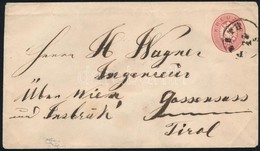 Herrn H Wagner
Ingenieur
Über Wien
und Insbruk Gossensass
Tirol
PESTH